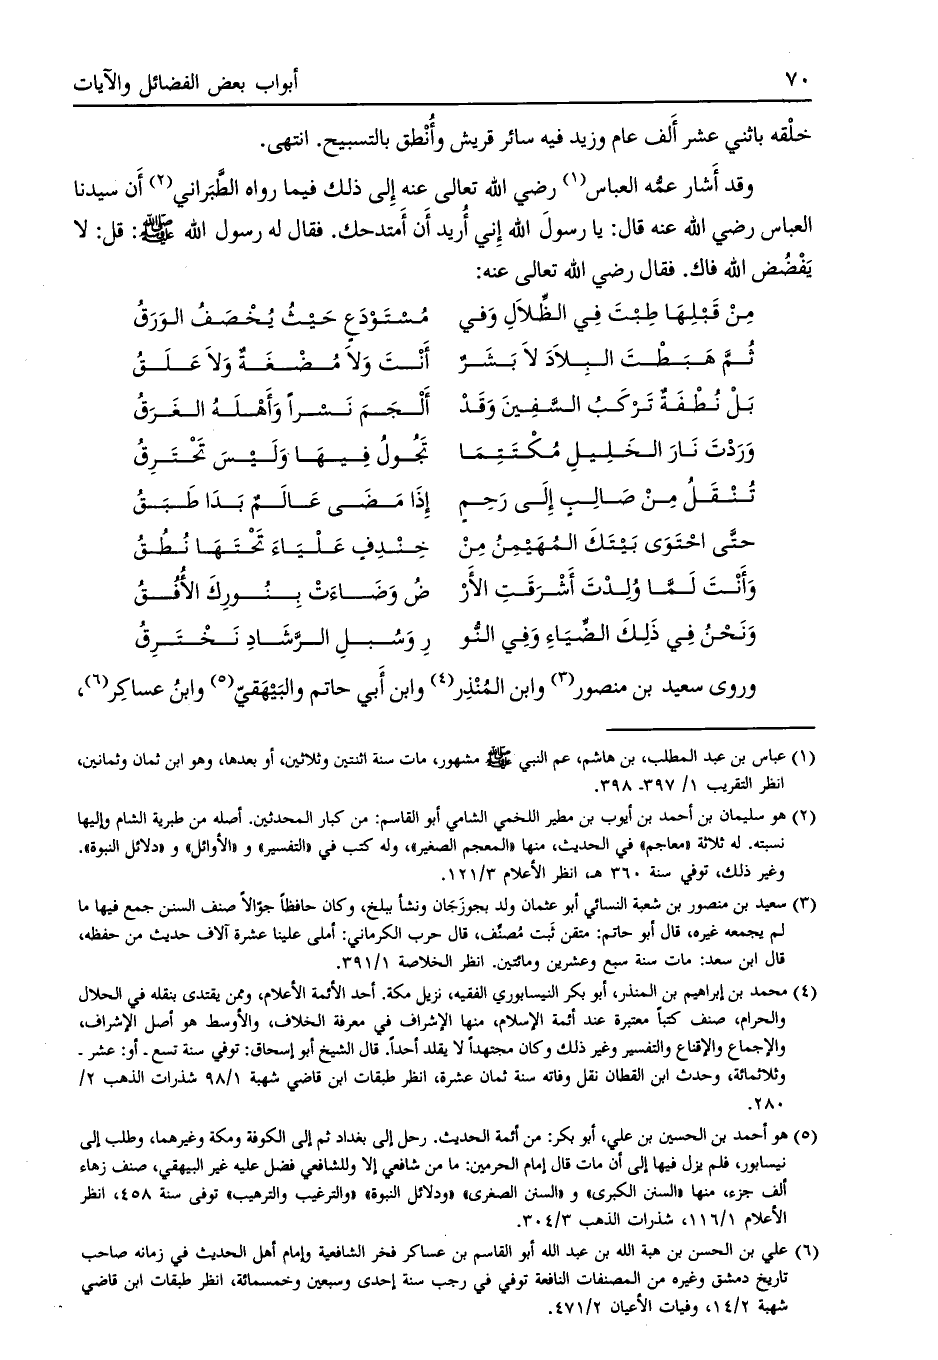 ٧٠ أبواب بعض الفضائل والآيات
خلْقه باثني عشر أَلف عام وزيد فيه سائر قريش وأُنْطق بالتسبيح. انتهى.
وقد أَشار عمُّه العباس(١) رضي الله تعالى عنه إِلى ذلك فيما رواه الطَّبَراني(٢) أَن سيدنا
العباس رضي الله عنه قال: يا رسولَ الله إِني أُريد أَن أَمتدحك. فقال له رسول الله ﷺ: قل: لا
يَفْضُض الله فاك. فقال رضي الله تعالى عنه:
مِنْ قَبْلِهَا طِبْتَ فِي الظِّلَالِ وَفي مُسْتَوْدَعٍ حَيْثُ يُخْصَفُ الوَرَقُ
ثُمَّ هَبَطْتَ البِلَادَ لاَ بَشَرٌ أَنْتَ وَلاَ مُضْغَةٌ وَلاَ عَلَقُ
بَلْ نُطْفَةٌ تَرْكَبُ السَّفِينَ وَقَدْ أَلْجَمَ نَسْراً وَأَهْلَهُ الغَرَقُ
وَرَدْتَ نَارَ الخَلِيلِ مُكْتَتِمَا تَجُولُ فِيهَا وَلَيْسَ تَحْتَرِقُ
تُنْقَلُ مِنْ صَالِبٍ إِلَى رَحِمٍ إِذَا مَضَى عَالَمٌ بَدَا طَبَقُ
حتَّى احْتَوَى بَيْتَكَ المُهَيْمِنُ مِنْ خِنْدِفِ عَلْيَاءَ تَحْتَهَا نُطُقُ
وَأَنْتَ لَمَّا وُلِدْتَ أَشْرَقَتِ الأَرْ ضُ وَضَاءَتْ بِنُورِكَ الأُفُقُ
وَنَحْنُ فِي ذَلِكَ الضِّيَاءِ وَفِي النُّو رِ وَسُبلِ الرَّشَادِ نَخْتَرِقُ
وروى سعيد بن منصور(٣) وابن المُنْذِر(٤) وابن أَبي حاتم والبَيْهَقيّ(٥) وابنُ عساكِر(٦)،
(١) عباس بن عبد المطلب، بن هاشم، عم النبي ﷺ مشهور، مات سنة اثنتين وثلاثين، أو بعدها، وهو ابن ثمان وثمانين،
انظر التقريب ١/ ٣٩٧ـ ٣٩٨.
(٢) هو سليمان بن أحمد بن أيوب بن مطير اللخمي الشامي أبو القاسم: من كبار المحدثين. أصله من طبرية الشام وإليها
نسبته. له ثلاثة «معاجم» في الحديث، منها «المعجم الصغير»، وله كتب في «التفسير» و «الأوائل» و «دلائل النبوة».
وغير ذلك، توفي سنة ٣٦٠ هـ، انظر الأعلام ١٢١/٣.
(٣) سعيد بن منصور بن شعبة النسائي أبو عثمان ولد بجوزَجَان ونشأ ببلخ، وكان حافظاً جوّالاً صنف السنن جمع فيها ما
لم يجمعه غيره، قال أبو حاتم: متقن ثَبت مُصنِّف، قال حرب الكرماني: أملى علينا عشرة آلاف حديث من حفظه،
قال ابن سعد: مات سنة سبع وعشرين ومائتين. انظر الخلاصة ٣٩١/١.
(٤) محمد بن إبراهيم بن المنذر، أبو بكر النيسابوري الفقيه، نزيل مكة. أحد الأئمة الأعلام، وممن يقتدى بنقله في الحلال
والحرام، صنف كتباً معتبرة عند أئمة الإسلام، منها الإشراف في معرفة الخلاف، والأوسط هو أصل الإشراف،
والإجماع والإقناع والتفسير وغير ذلك وكان مجتهداً لا يقلد أحداً. قال الشيخ أبو إسحاق: توفي سنة تسع ـ أو: عشر ـ
وثلاثمائة، وحدث ابن القطان نقل وفاته سنة ثمان عشرة، انظر طبقات ابن قاضي شهبة ٩٨/١ شذرات الذهب ٢/
٢٨٠.
(٥) هو أحمد بن الحسين بن علي، أبو بكر: من أئمة الحديث. رحل إلى بغداد ثم إلى الكوفة ومكة وغيرهما، وطلب إلى
نيسابور، فلم يزل فيها إلى أن مات قال إمام الحرمين: ما من شافعي إلا وللشافعي فضل عليه غير البيهقي، صنف زهاء
ألف جزء، منها «السنن الكبرى» و «السنن الصغرى» «ودلائل النبوة» «والترغيب والترهيب» توفى سنة ٤٥٨، انظر
الأعلام ١١٦/١، شذرات الذهب ٣٠٤/٣.
(٦) علي بن الحسن بن هبة الله بن عبد الله أبو القاسم بن عساكر فخر الشافعية وإمام أهل الحديث في زمانه صاحب
تاريخ دمشق وغيره من المصنفات النافعة توفي في رجب سنة إحدى وسبعين وخمسمائة، انظر طبقات ابن قاضي
شهبة ١٤/٢، وفيات الأعيان ٤٧١/٢.